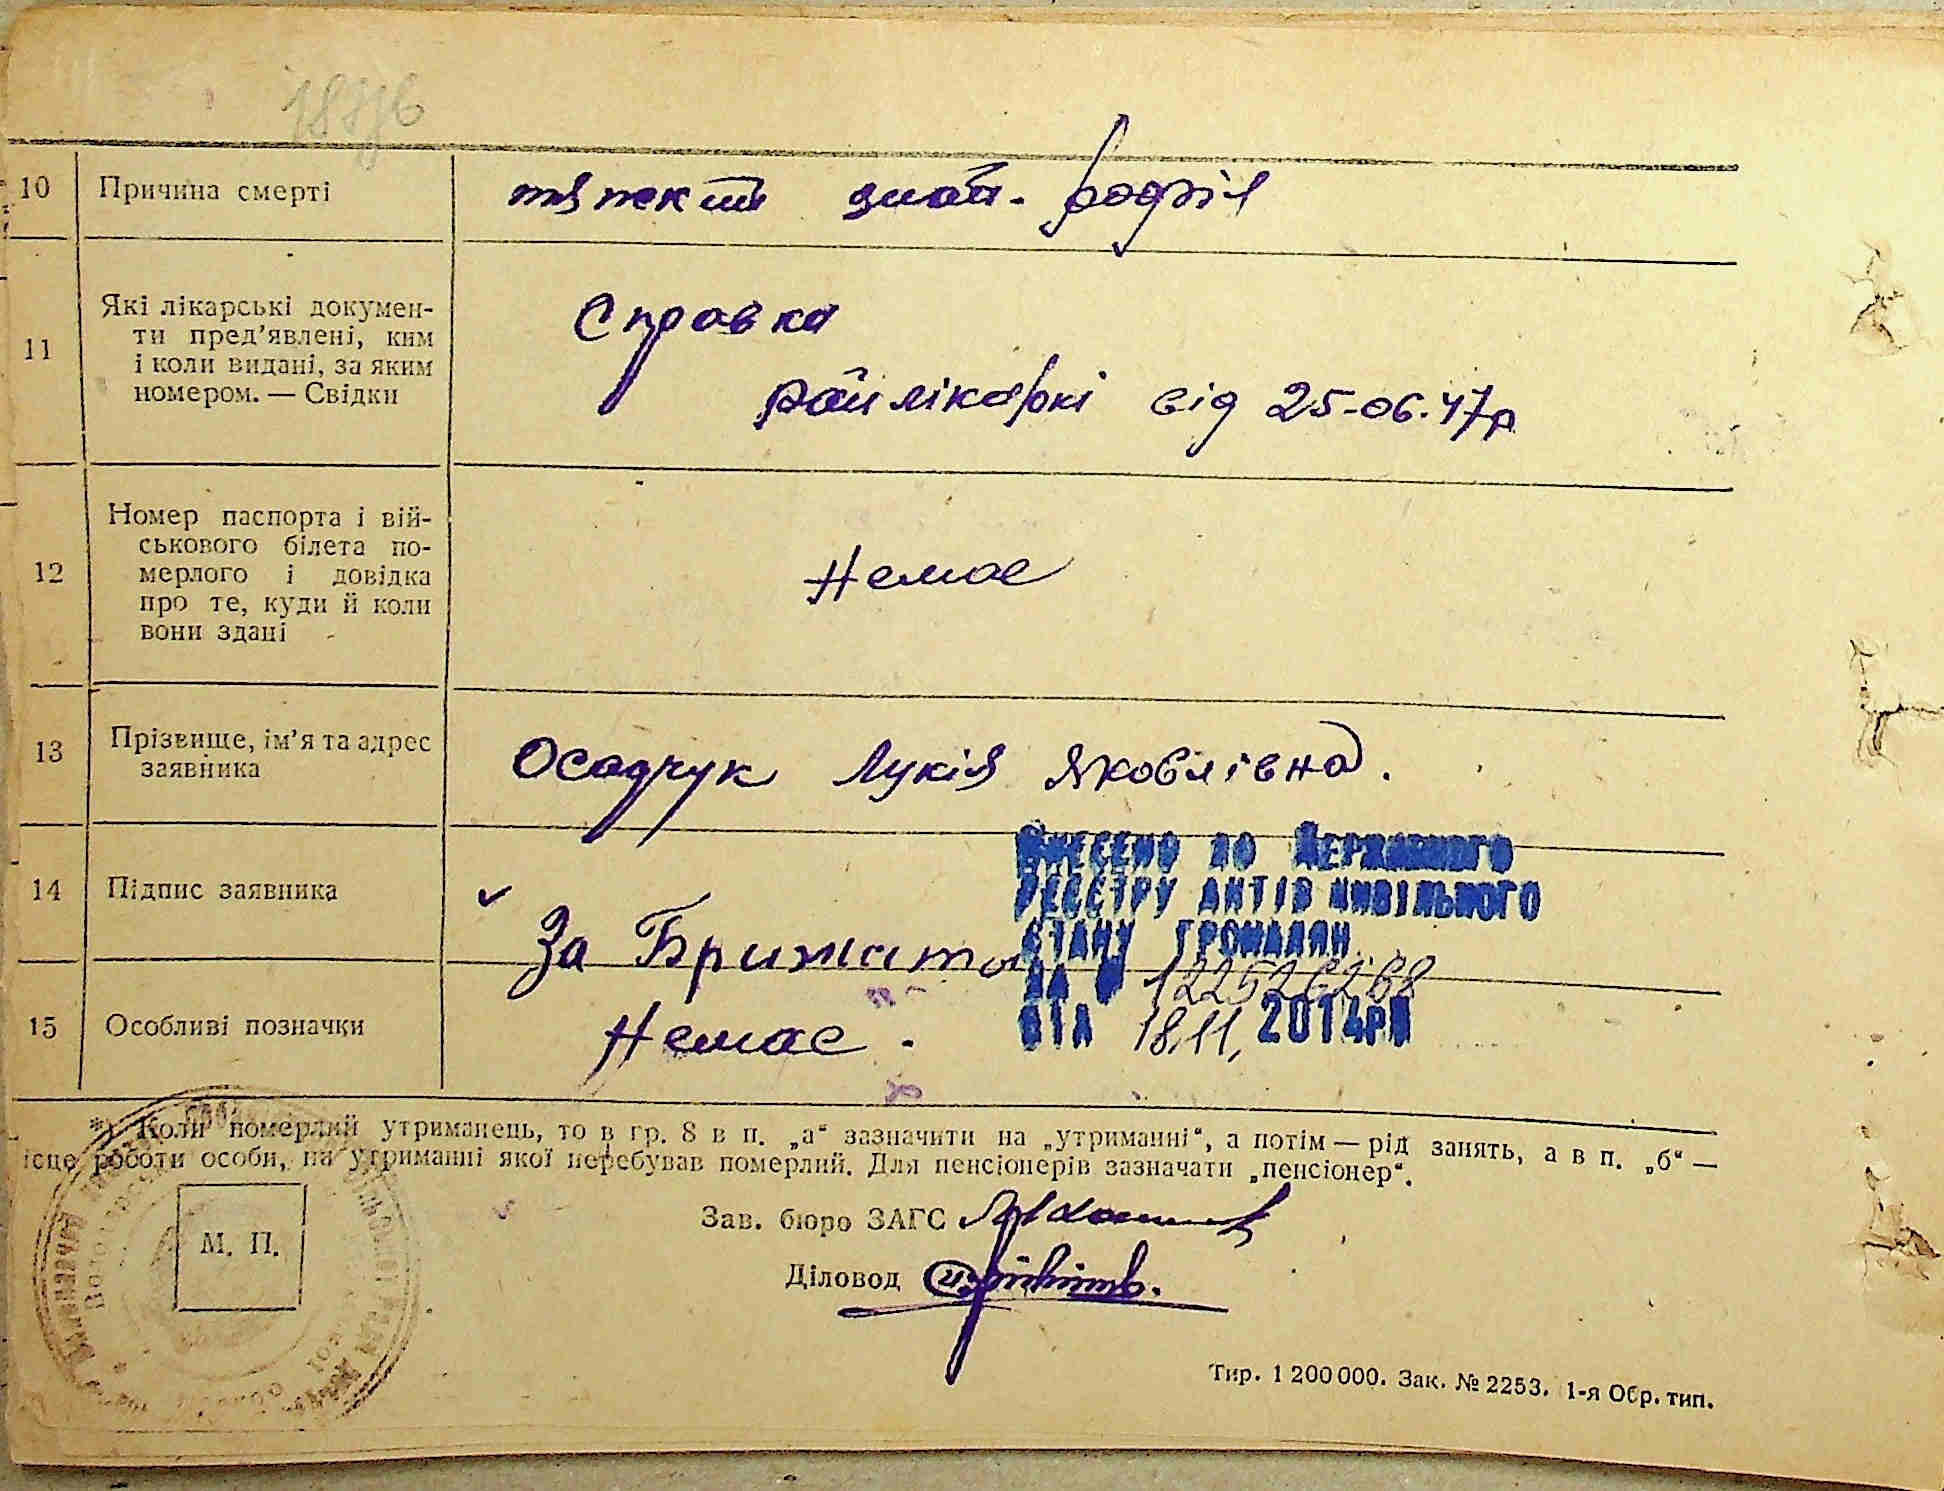 10 Причина смерті
11 Які лікарські докумен-
ти пред'явлені, ким
і коли видані, за яким
номером. — Свідки
Справка
райлікаркі від 25-06.47р
12 Номер паспорта і вій-
ськового білета по-
мерлого і довідка
про те, куди й коли
вони здані
Немає
13 Прізвище, ім'я та адрес
заявника
Осадчук Лукія Яковлівна.
14 Підпис заявника
За
15 Особливі позначки
Немає.
Внесено до Державного
реєстру актів цивільного
стану громадян
за № 122526268
від 18.11, 2014р
*) Коли померлий утриманець, то в гр. 8 в п. „а“ зазначити на „утриманні“, а потім — рід занять, а в п. „б“ —
ісце роботи особи, на утриманні якої перебував померлий. Для пенсіонерів зазначати „пенсіонер“.
М. П.
Зав. бюро ЗАГС
Діловод
Тир. 1 200 000. Зак. № 2253. 1-я Обр. тип.